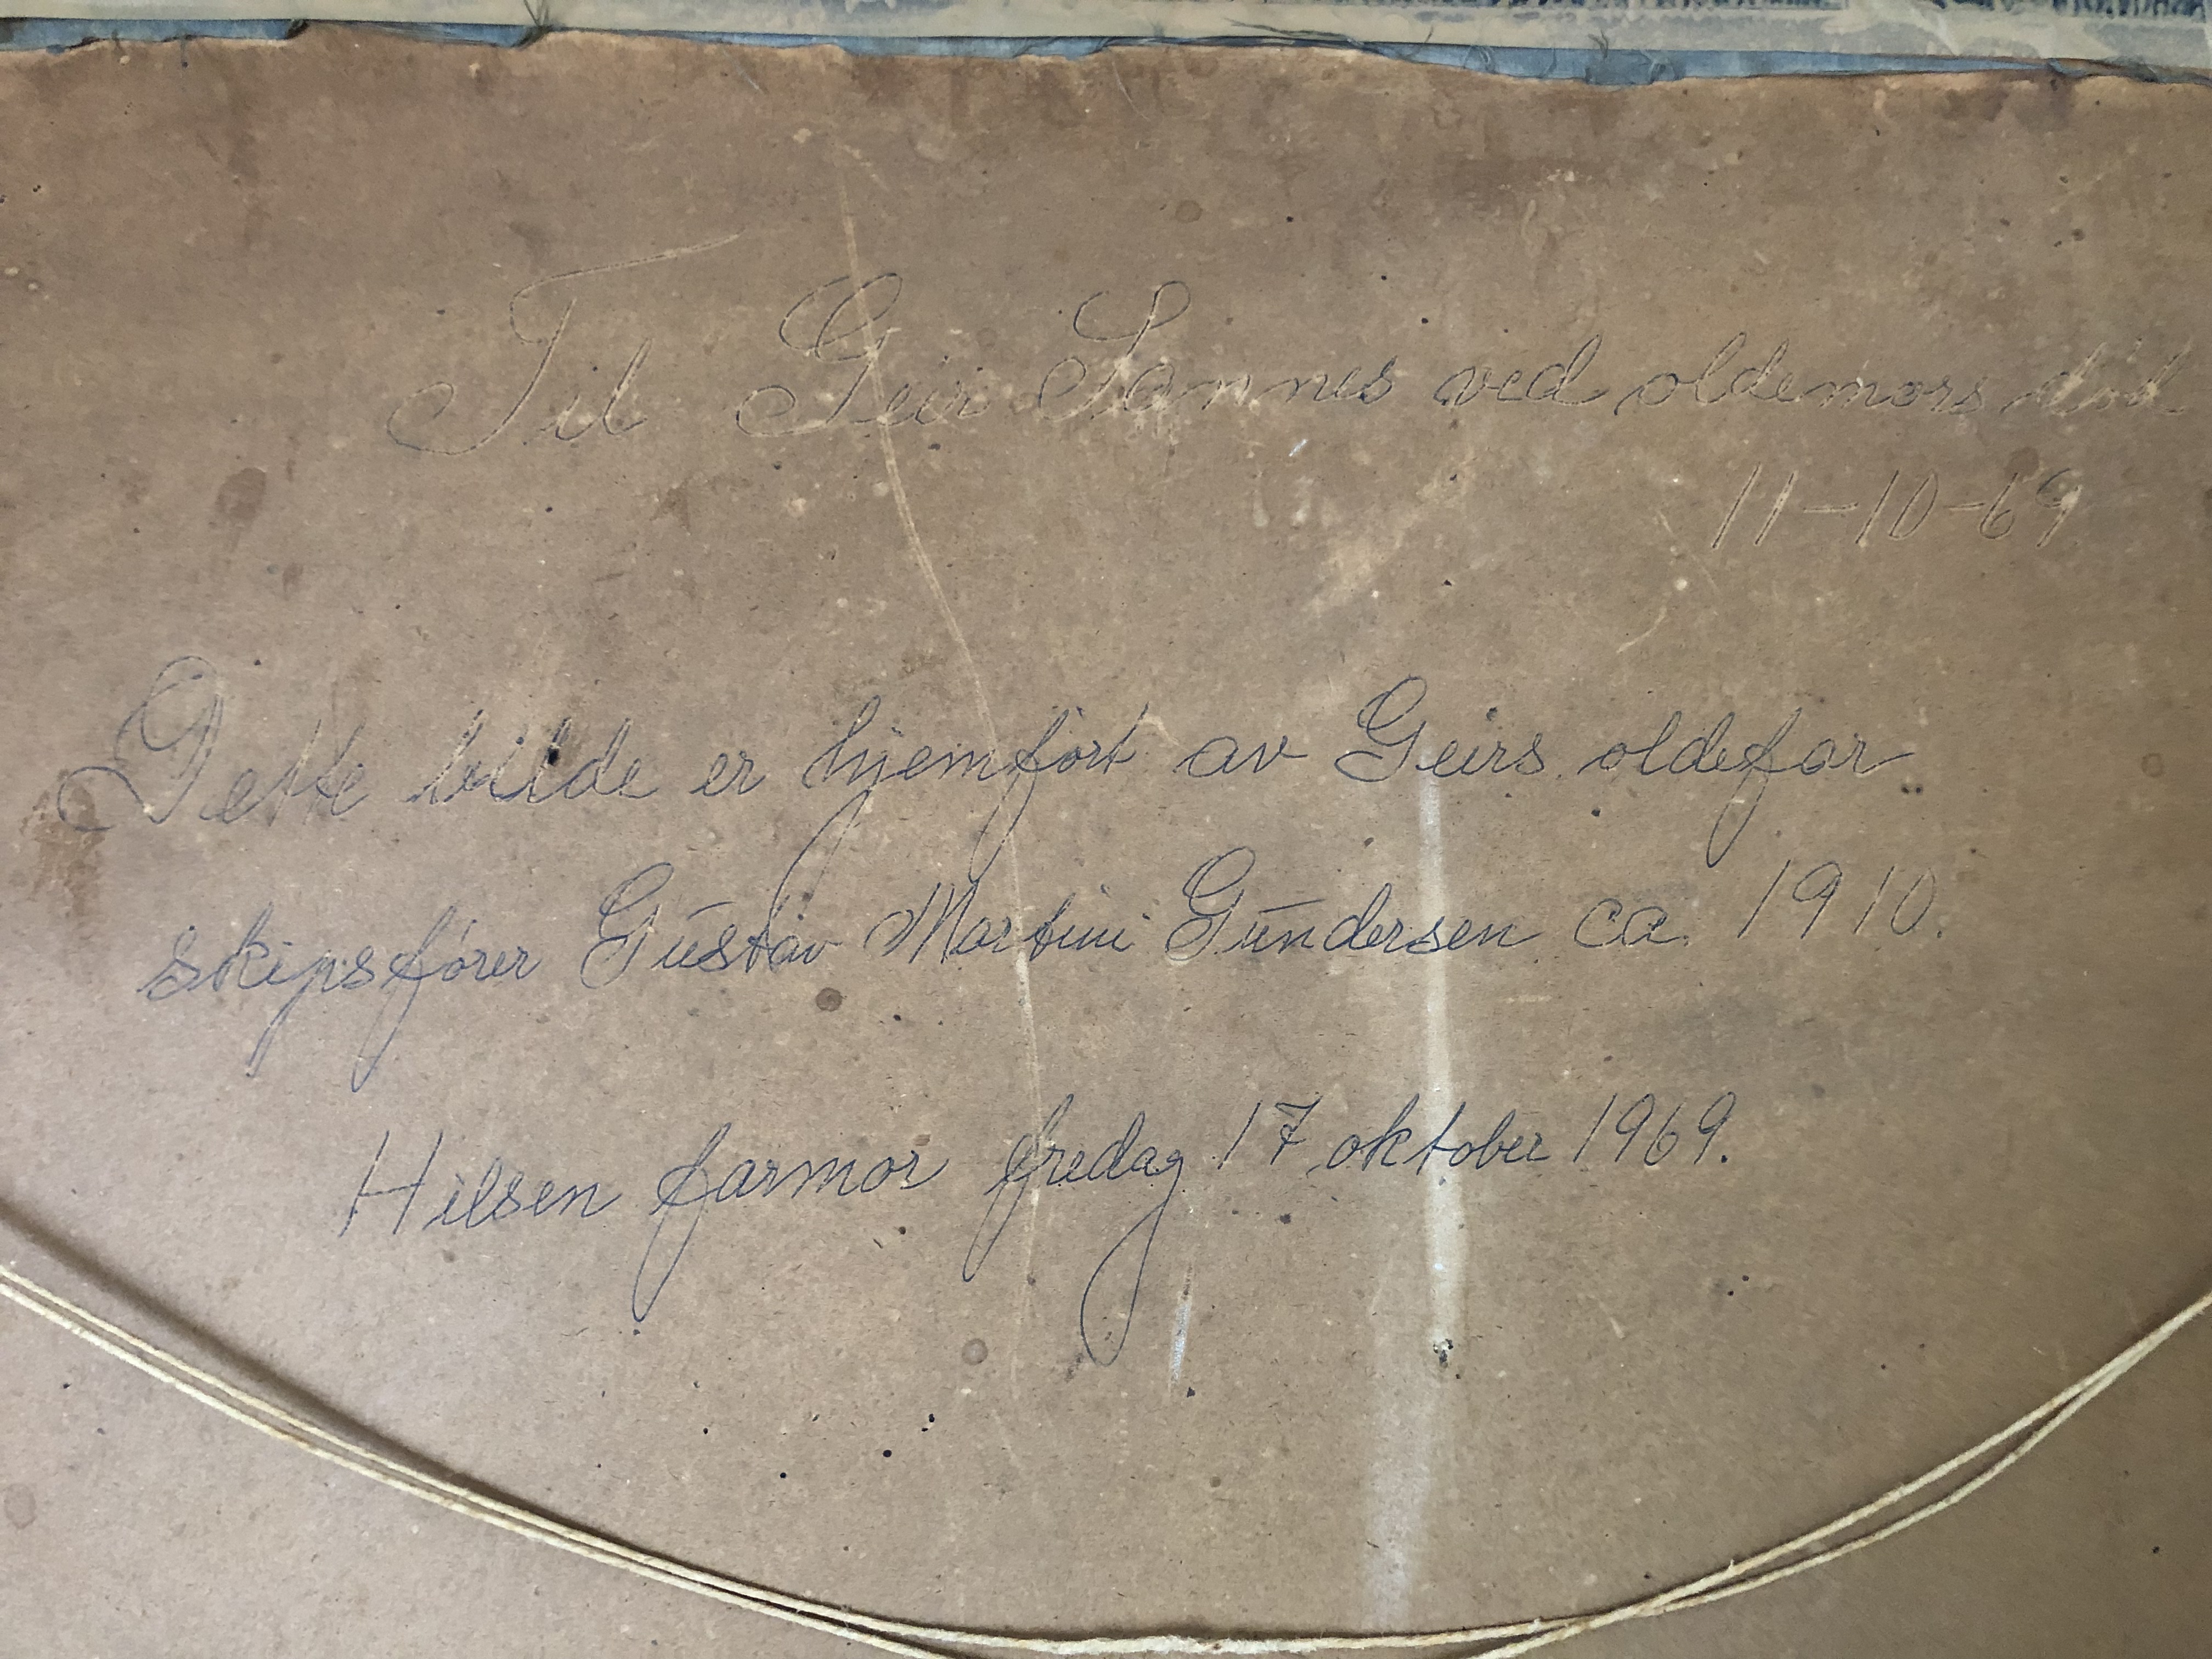 Til Geir Sannes ved oldemors død
11-10-69
Dette bilde er hjemført av Geirs oldefar
skipsfører Gustav Martini Gundersen ca. 1910.
Hilsen farmor fredag 17 oktober 1969.